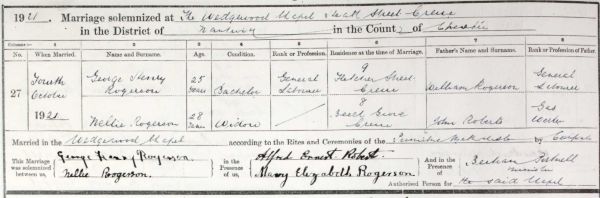 1921 Marriage solemnized at The Wedgewood Chapel Heath Street Crewe
in the District of Nantwich in the County of Cheshire
Columns:— 1 2 3 4 5 6 7 8
No. When Married. Name and Surname. Age. Condition. Rank or Profession. Residence at the time of Marriage. Father's Name and Surname. Rank or Profession of Father.
27 Fourth October 1921 George Henry Rogerson 25 years Bachelor General Labourer 9 Fletcher Street Crewe William Rogerson General Labourer
Nellie Rogerson 28 years Widow 8 Beech Grove Crewe John Roberts Gas
Married in the Wedgewood Chapel according to the Rites and Ceremonies of the Primitive Methodists by Certificate
This Marriage was solemnized between us, George Henry Rogerson. Nellie Rogerson. In the Presence of us, Alfred Ernest Mary Elizabeth Rogerson. And in the Presence of Minister
Authorised Person for the said Chapel